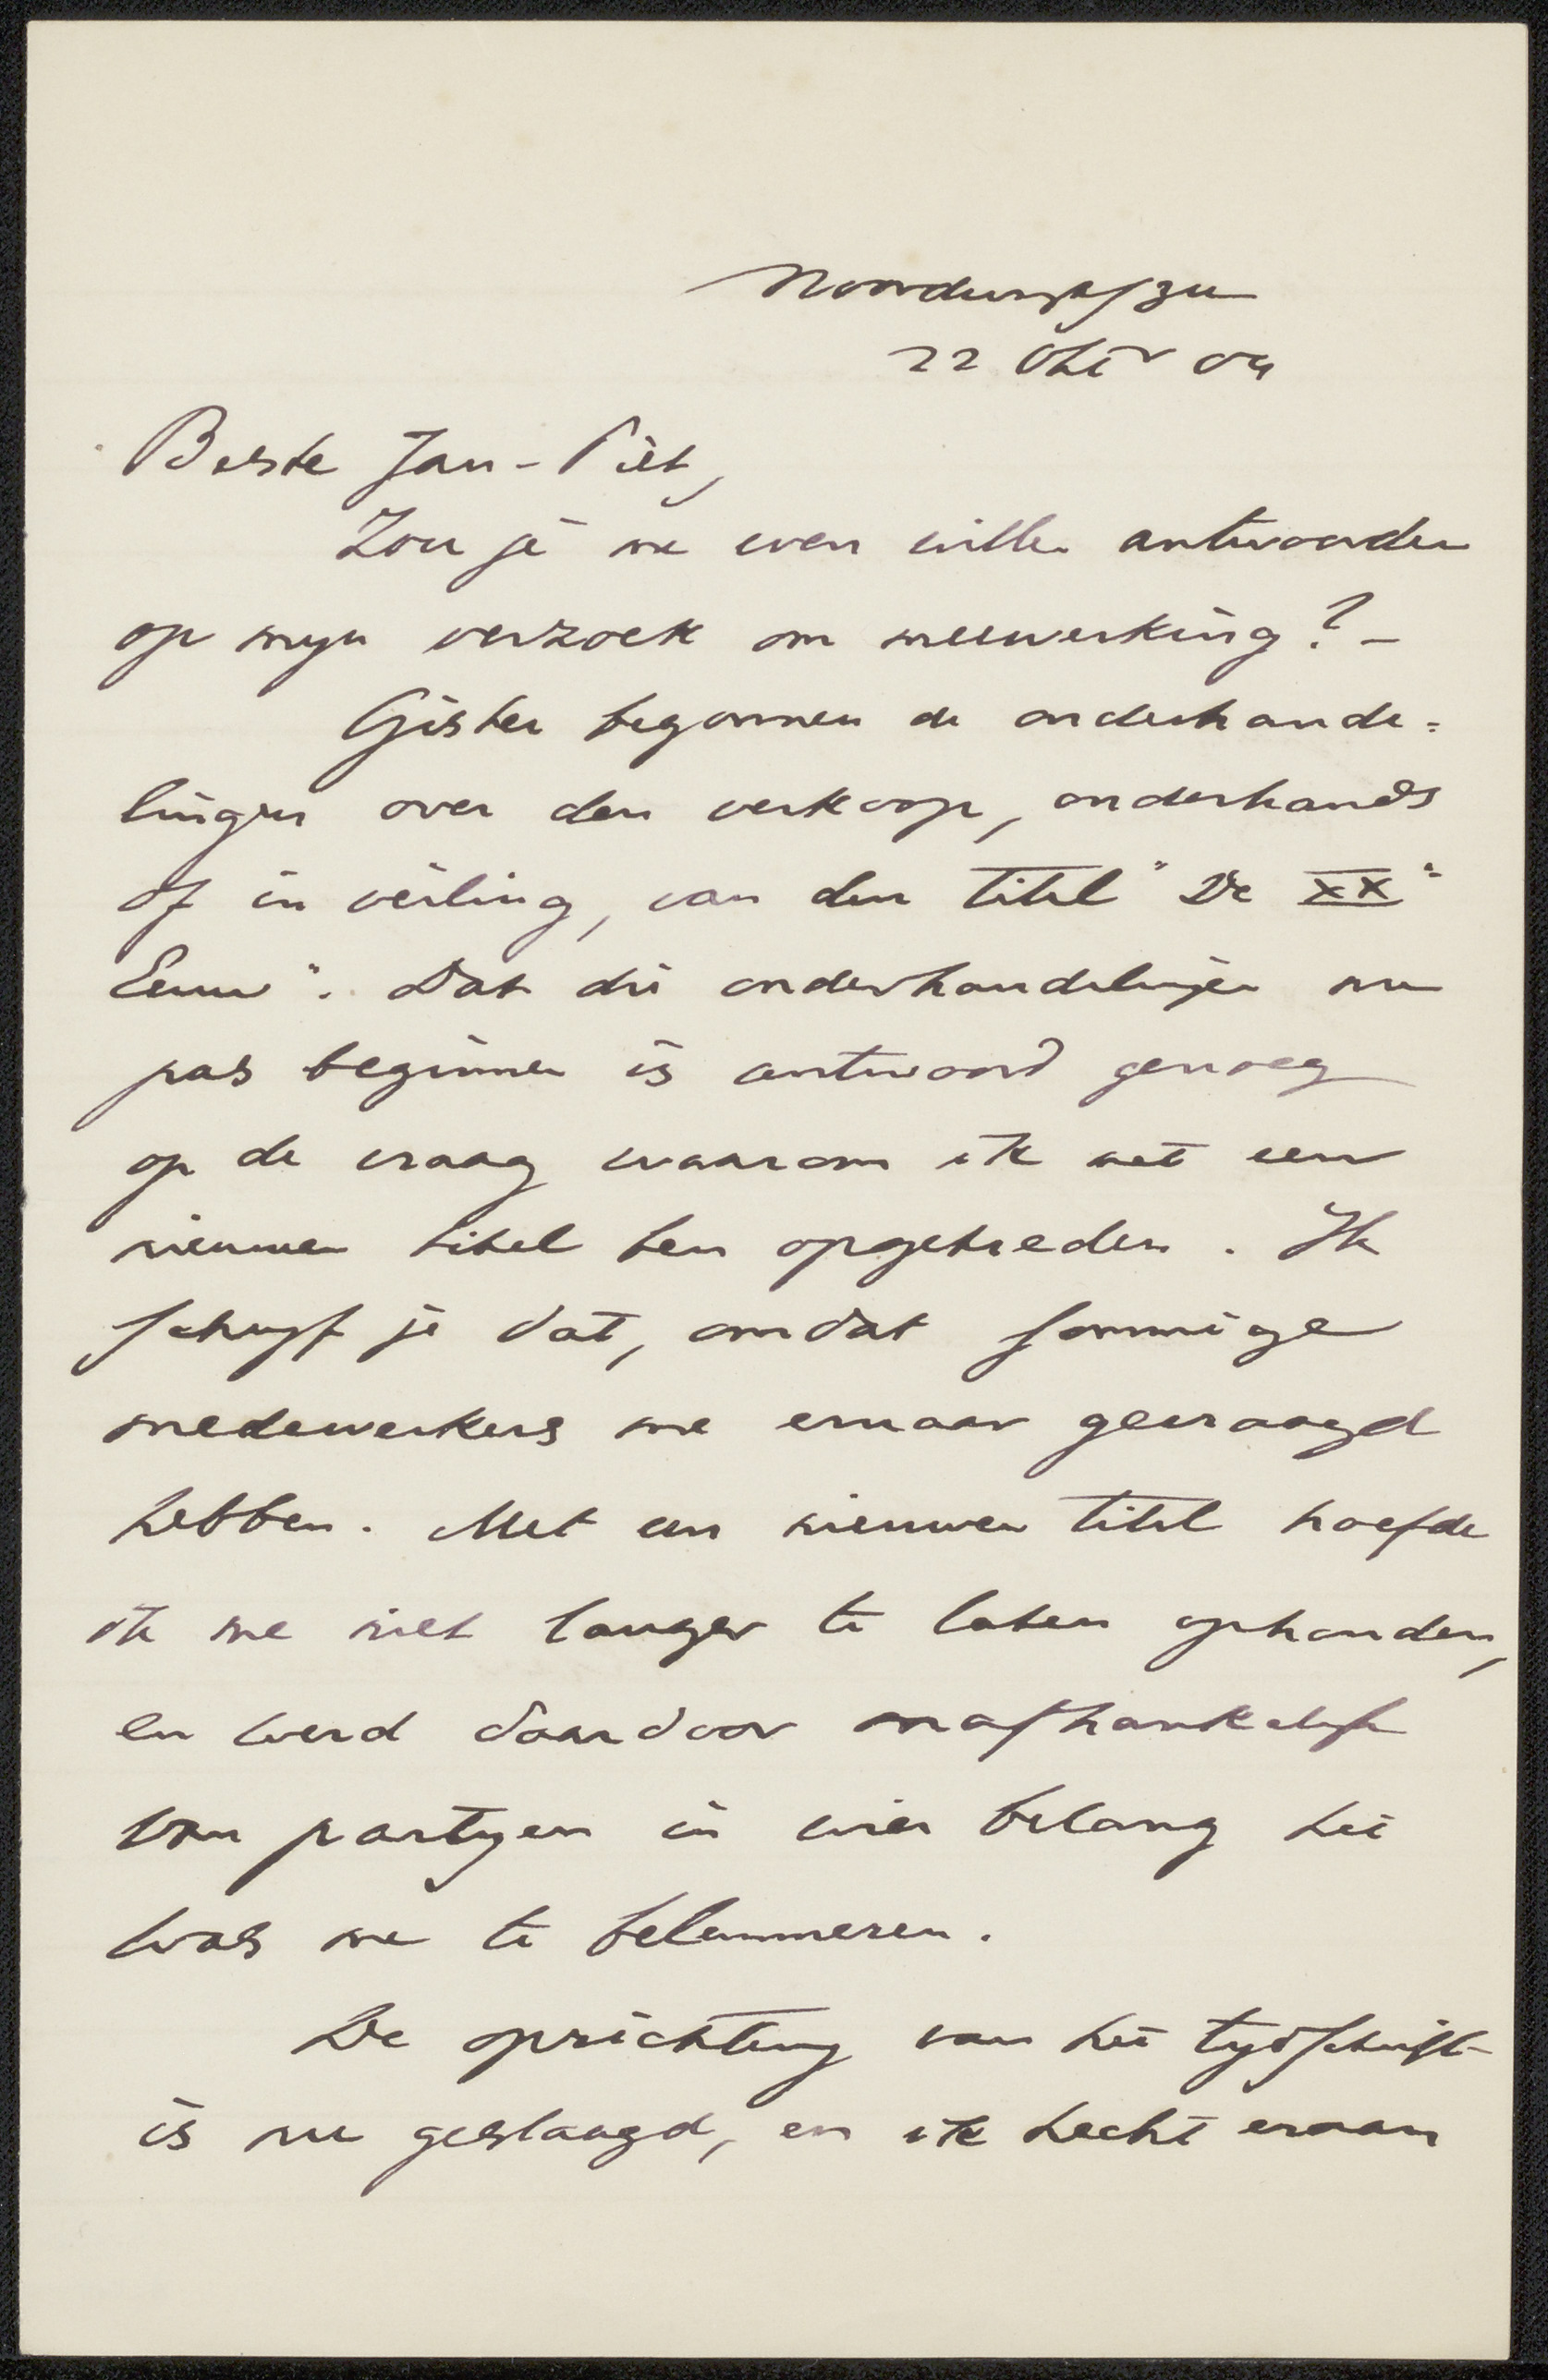 Noordwijk/zee
22 Okt 04
Beste Jan-Piet,
Zou je me even willen antwoorden
op mijn verzoek om meewerking? –
Gister begonnen de onderhande=
lingen over den verkoop, onderhands
of in veiling, van den titel "De XXe
Eeuw". Dat die onderhandelingen nu
pas beginnen is antwoord genoeg
op de vraag waarom ik met een
nieuwen titel ben opgetreden. Ik
schrijf je dat, omdat sommige
medewerkers me ernaar gevraagd
hebben. Met een nieuwen titel hoefde
ik me niet langer te laten ophouden,
en werd daardoor onafhankelijk
van partijen in wier belang het
was me te belemmeren.
De oprichting van het tijdschrift
is nu geslaagd, en ik hecht eraan